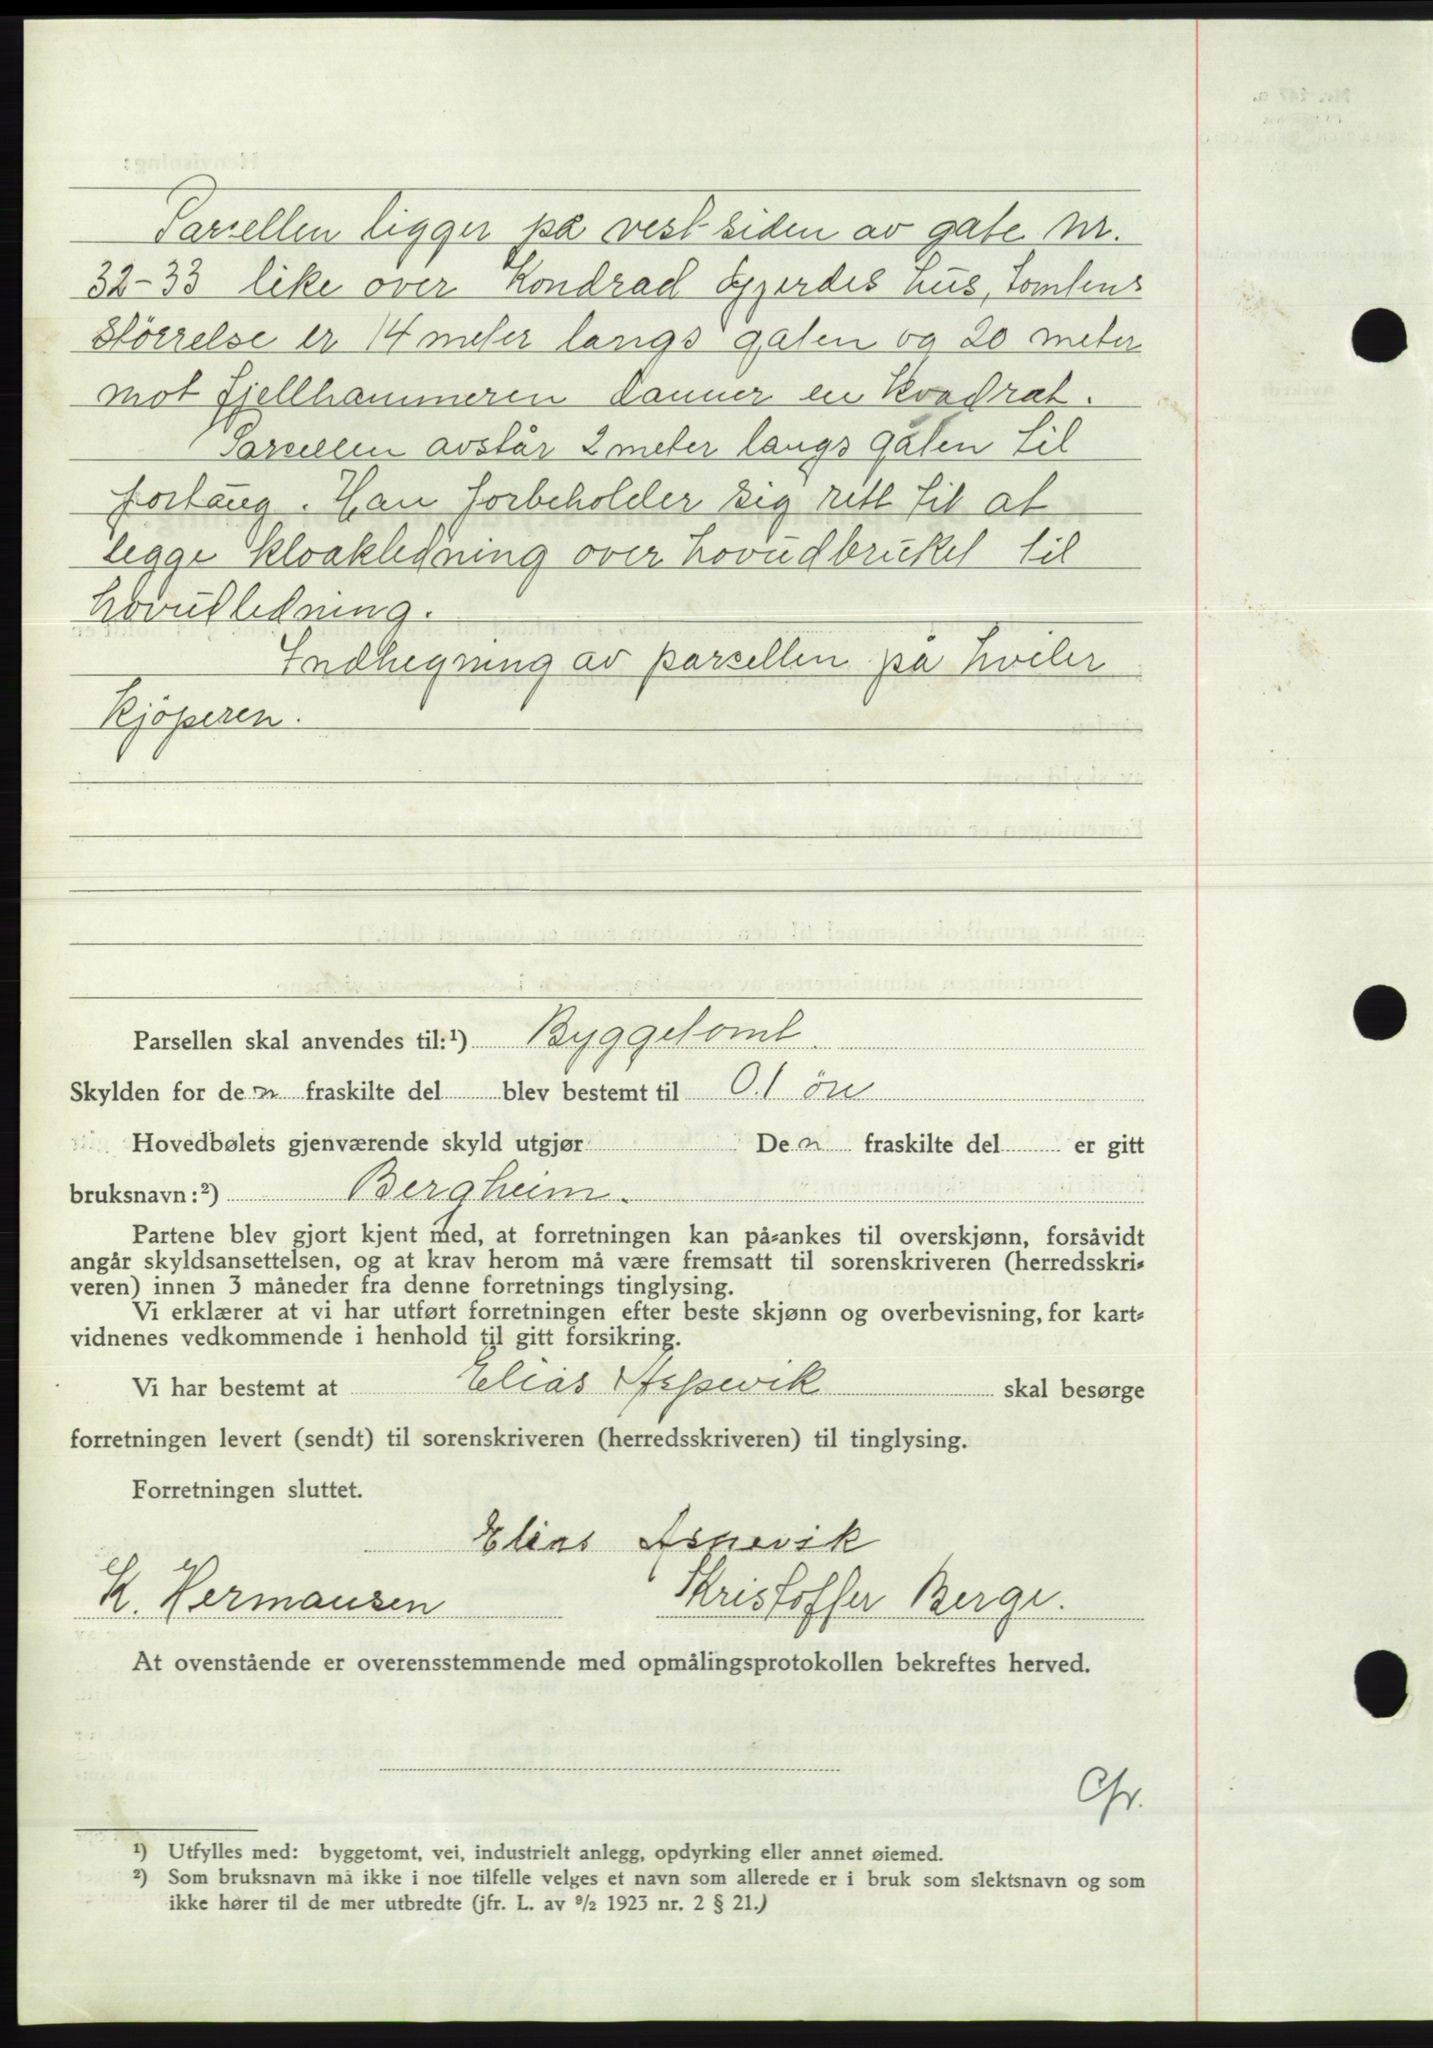 Parsellen ligger på vest-siden av gate nr.
32-33 like over Kondrad Gjerdes hus, tomtens
störrelse er 14 meter langs gaten og 20 meter
mot fjellhammeren danner en kvadrat.
Parsellen avstår 2 meter langs gaten til
fortaug. Han forbeholder sig rett til at
legge kloakledning over hovudbruket til
hovudledning.
Indhegning av parsellen på hviler
kjöperen.
Parsellen skal anvendes til:¹) Byggetomt.
Skylden for den fraskilte del blev bestemt til 0.1 öre
Hovedbølets gjenværende skyld utgjør Den fraskilte del er gitt
bruksnavn:²) Bergheim.
Partene blev gjort kjent med, at forretningen kan på-ankes til overskjønn, forsåvidt
angår skyldsansettelsen, og at krav herom må være fremsatt til sorenskriveren (herredsskri-
veren) innen 3 måneder fra denne forretnings tinglysing.
Vi erklærer at vi har utført forretningen efter beste skjønn og overbevisning, for kart-
vidnenes vedkommende i henhold til gitt forsikring.
Vi har bestemt at Elias Aspevik skal besørge
forretningen levert (sendt) til sorenskriveren (herredsskriveren) til tinglysing.
Forretningen sluttet.
Elias Aspevik
K. Hermansen Kristoffer Berge.
At ovenstående er overensstemmende med opmålingsprotokollen bekreftes herved.
¹) Utfylles med: byggetomt, vei, industrielt anlegg, opdyrking eller annet øiemed.
²) Som bruksnavn må ikke i noe tilfelle velges et navn som allerede er i bruk som slektsnavn og som
ikke hører til de mer utbredte (jfr. L. av ⁹/₂ 1923 nr. 2 § 21.)